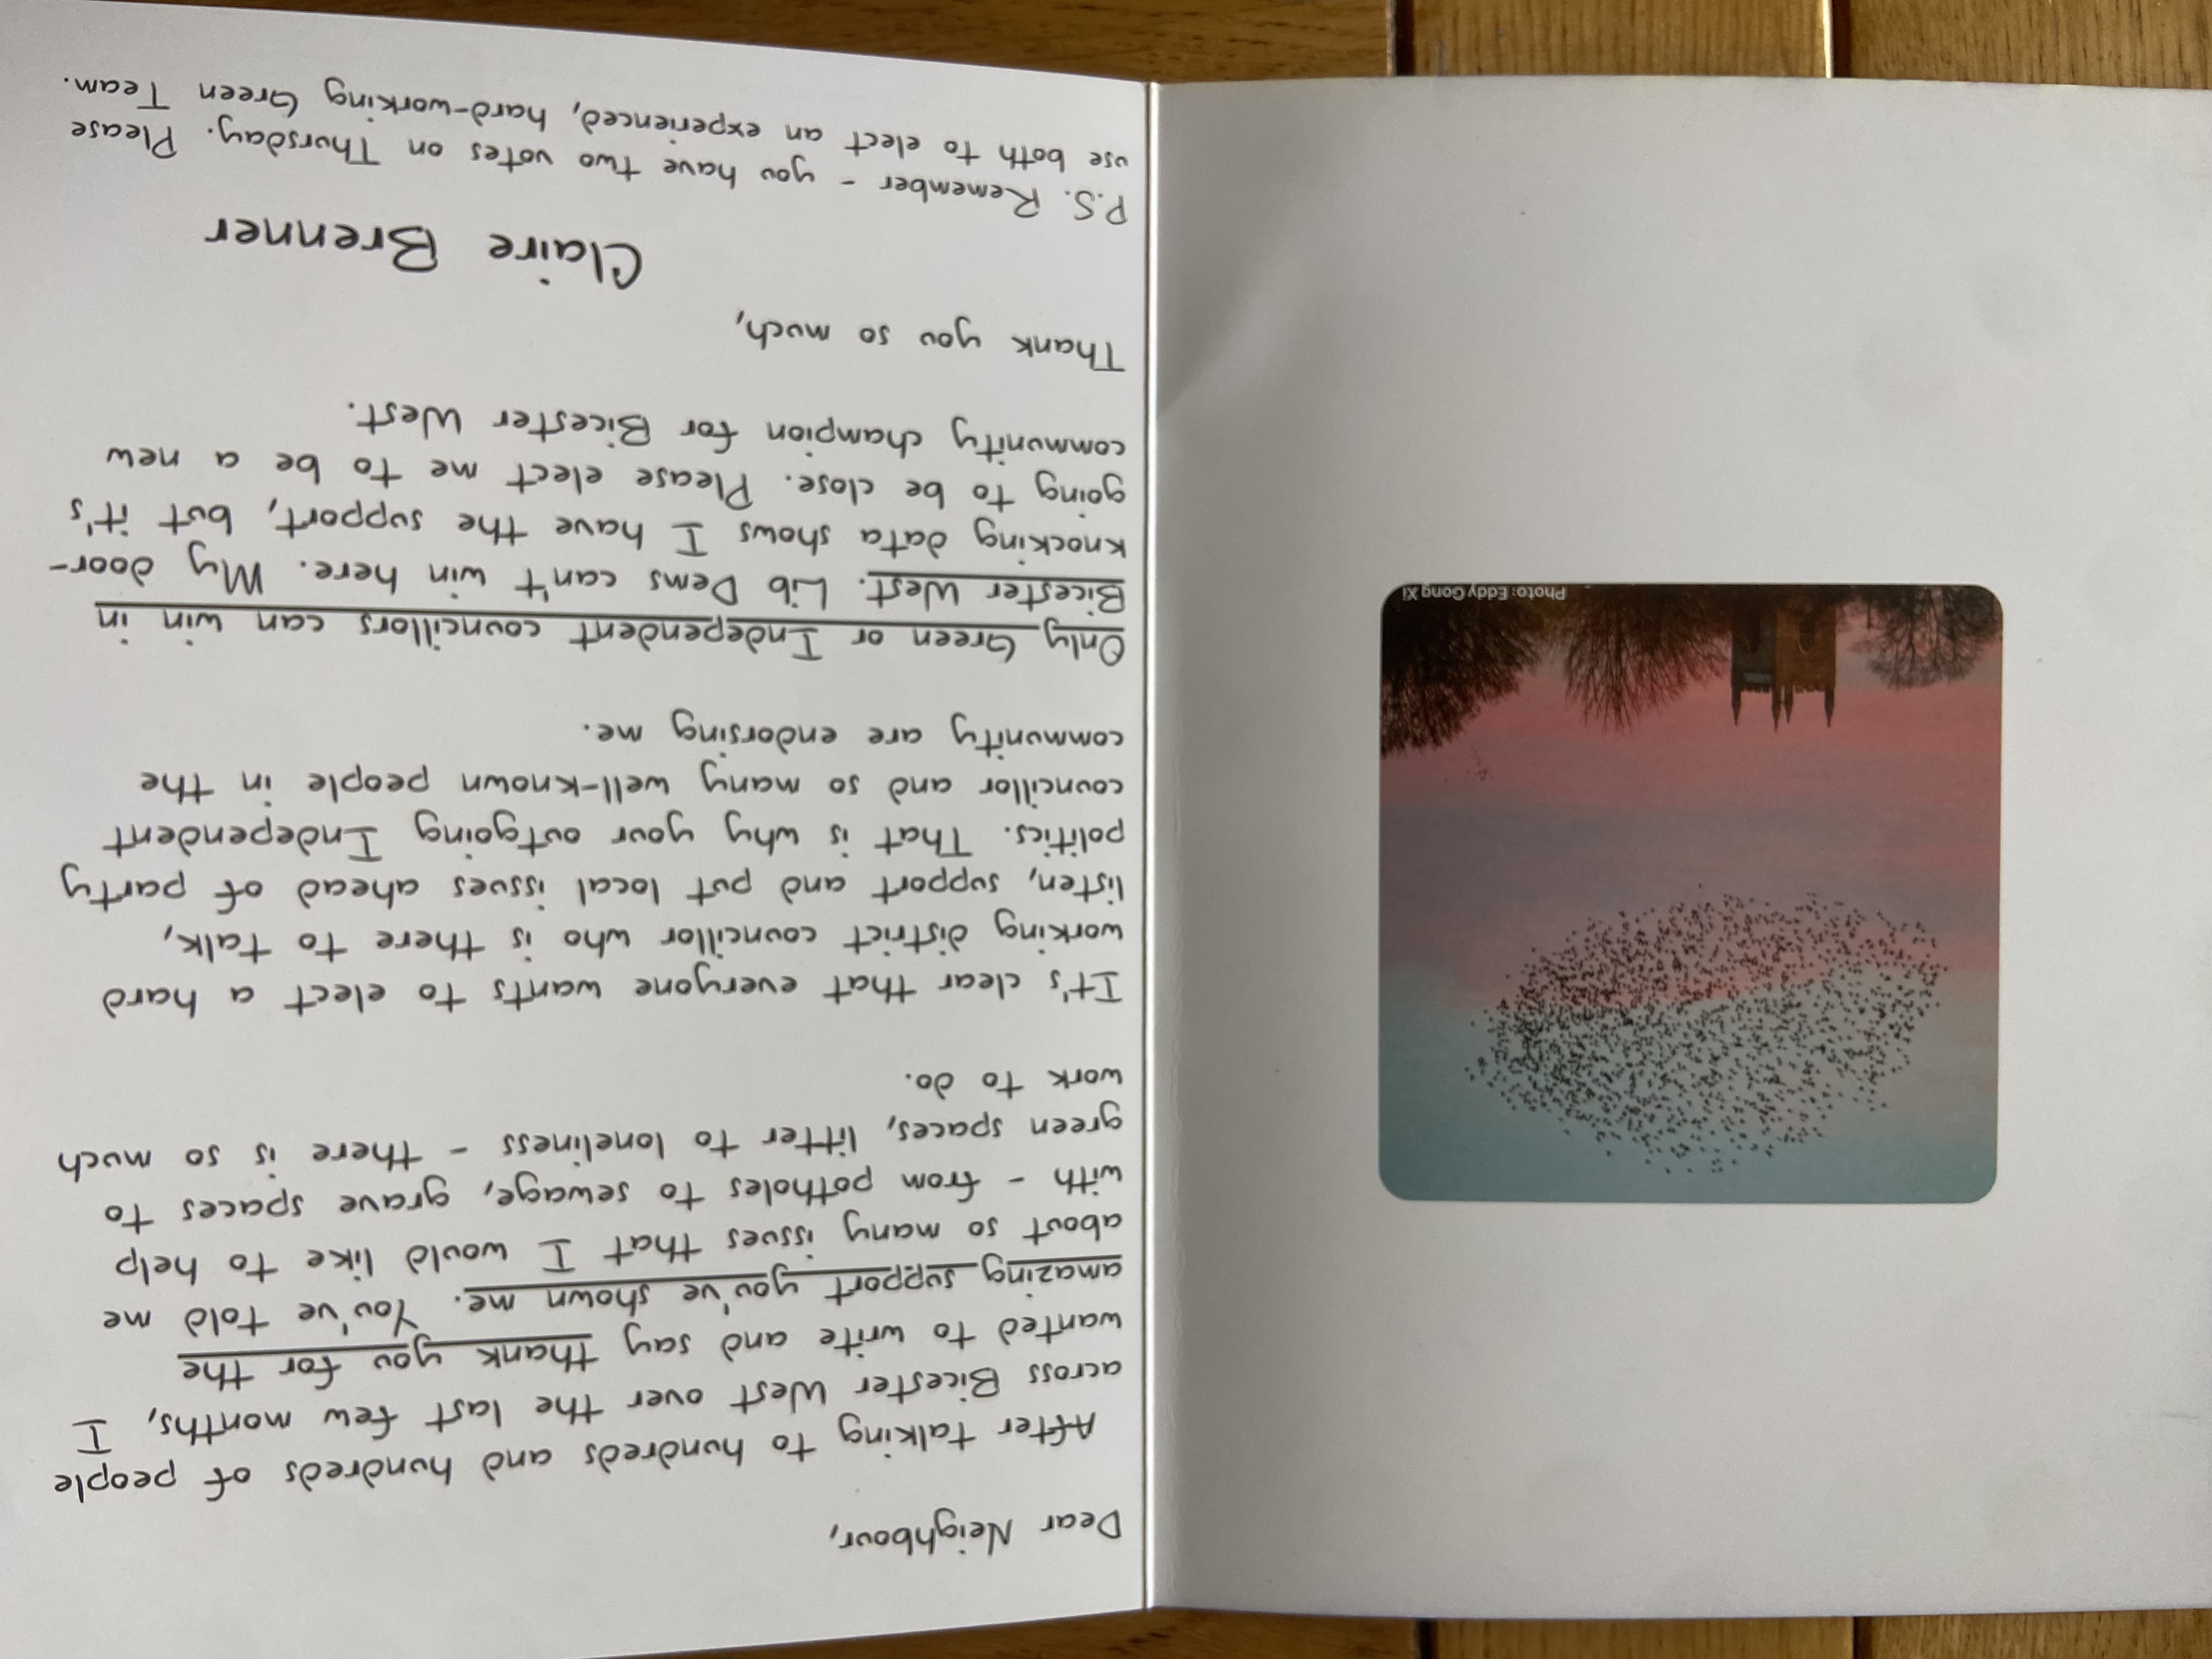 Dear Neighbour,
After talking to hundreds and hundreds of people
across Bicester West over the last few months, I
wanted to write and say thank you for the
amazing support you've shown me. You've told me
about so many issues that I would like to help
with - from potholes to sewage, grave spaces to
green spaces, litter to loneliness - there is so much
work to do.
It's clear that everyone wants to elect a hard
working district councillor who is there to talk,
listen, support and put local issues ahead of party
politics. That is why your outgoing Independent
councillor and so many well-known people in the
community are endorsing me.
Only Green or Independent councillors can win in
Bicester West. Lib Dems can't win here. My door-
knocking data shows I have the support, but it's
going to be close. Please elect me to be a new
community champion for Bicester West.
Thank you so much,
Claire Brenner
P.S. Remember - you have two votes on Thursday. Please
use both to elect an experienced, hard-working Green Team.
Photo: Eddy Gong Xi